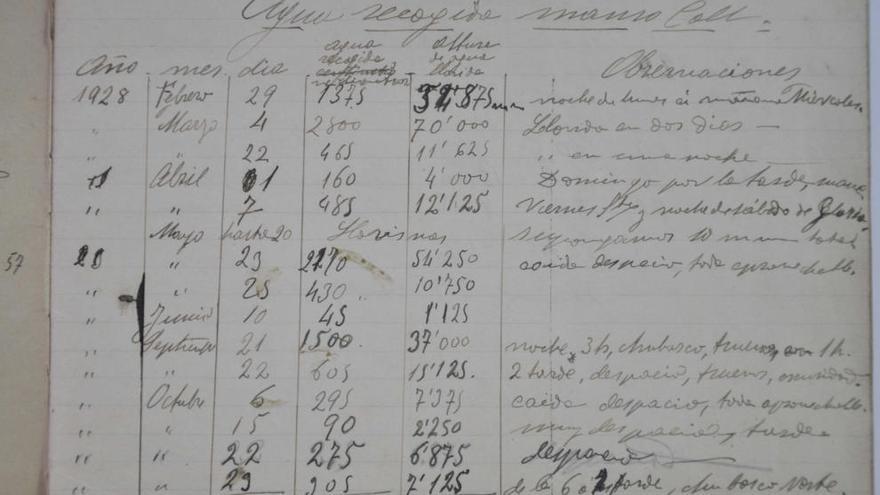 Agua recogida manso Coll.
agua altura
recogida de agua
Año mes dia llovida Observaciones
1928 Febrero 29 1375 34'875 mm noche de lunes á mañana Miércoles.
" Marzo 4 2800 70'000 Llovida en dos dias —
" " 22 465 11'625 " en una noche
" Abril 01 160 4'000 Domingo por la tarde,
" " 7 485 12'125 Viernes Sto y noche de sábado de Gloria
Mayo hasta 20 Lloviznas supongamos 10 mm total
57 28 " 23 2170 54'250 caida despacio, toda aprovechable.
" " 25 430 " 10'750
" Junio 10 45 1'125
" Septiembre 21 1500. 37'000 noche, 3h, chubasco, truenos, en 1h.
" " 22 605 15'125. 2 tarde, despacio, truenos,
" Octubre 6 295 7'375 caida despacio, toda aprovechable.
" " 15 90 2'250 muy despacio, tarde
" " 22 275 6'875 despacio
" " 23 7'125 de 6 tarde, chubasco Norte